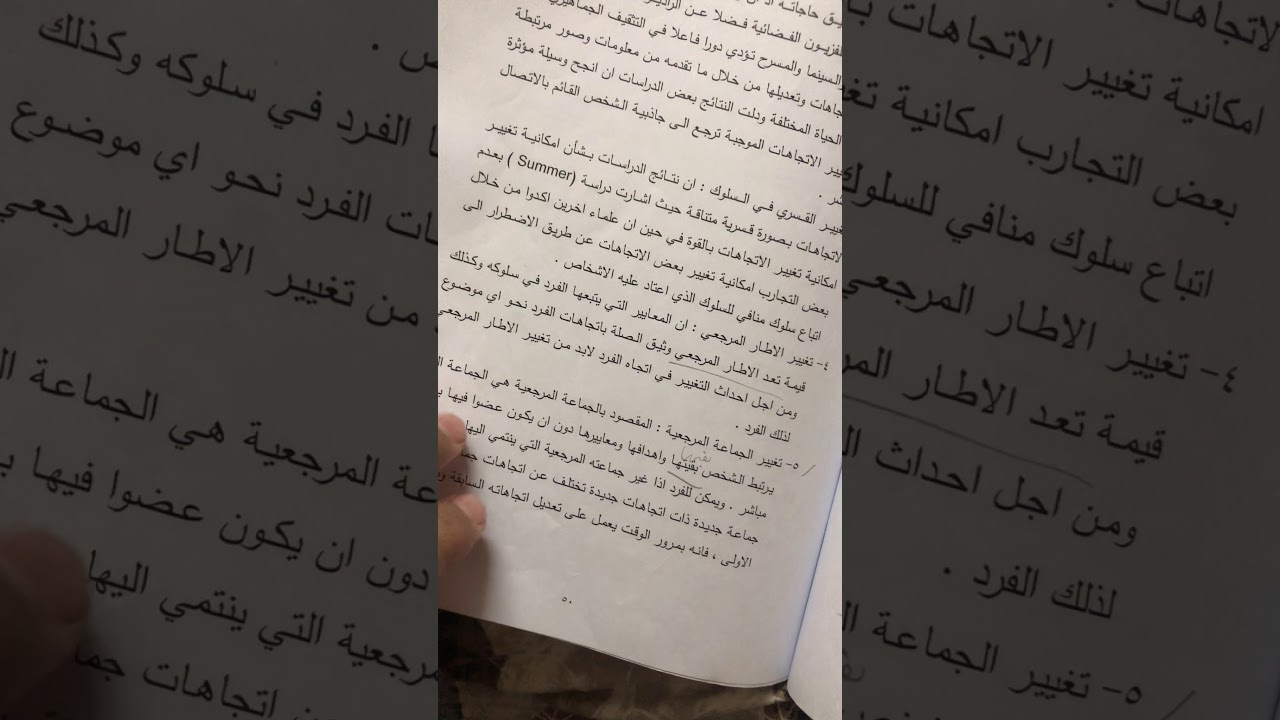 ـيق حاجاته
الفضائية فضلا عن
والسينما والمسرح تؤدي دورا فاعلا في التثقيف الجماهيري
وتعديلها من خلال ما تقدمه من معلومات وصور مرتبطة
الحياة المختلفة ودلت النتائج بعض الدراسات ان انجح وسيلة مؤثرة
الاتجاهات الموجبة ترجع الى جاذبية الشخص القائم بالاتصال
القسري في السلوك : ان نتائج الدراسات بشأن امكانية تغيير
الاتجاهات بصورة قسرية متناقة حيث اشارت دراسة (Summer ) بعدم
امكانية تغيير الاتجاهات بالقوة في حين ان علماء اخرين اكدوا من خلال
بعض التجارب امكانية تغيير بعض الاتجاهات عن طريق الاضطرار الى
اتباع سلوك منافي للسلوك الذي اعتاد عليه الاشخاص .
٤- تغيير الاطار المرجعي : ان المعايير التي يتبعها الفرد في سلوكه وكذلك
قيمة تعد الاطار المرجعي وثيق الصلة باتجاهات الفرد نحو اي موضوع
ومن اجل احداث التغيير في اتجاه الفرد لابد من تغيير الاطار المرجعي
لذلك الفرد .
٥- تغيير الجماعة المرجعية : المقصود بالجماعة المرجعية هي الجماعة
يرتبط الشخص بقينها واهدافها ومعاييرها دون ان يكون عضوا فيها
بقيمها
مباشر . ويمكن للفرد اذا غير جماعته المرجعية التي ينتمي اليها
جماعة جديدة ذات اتجاهات جديدة تختلف عن اتجاهات
الاولى ، فانه بمرور الوقت يعمل على تعديل اتجاهاته السابقة
٥٠